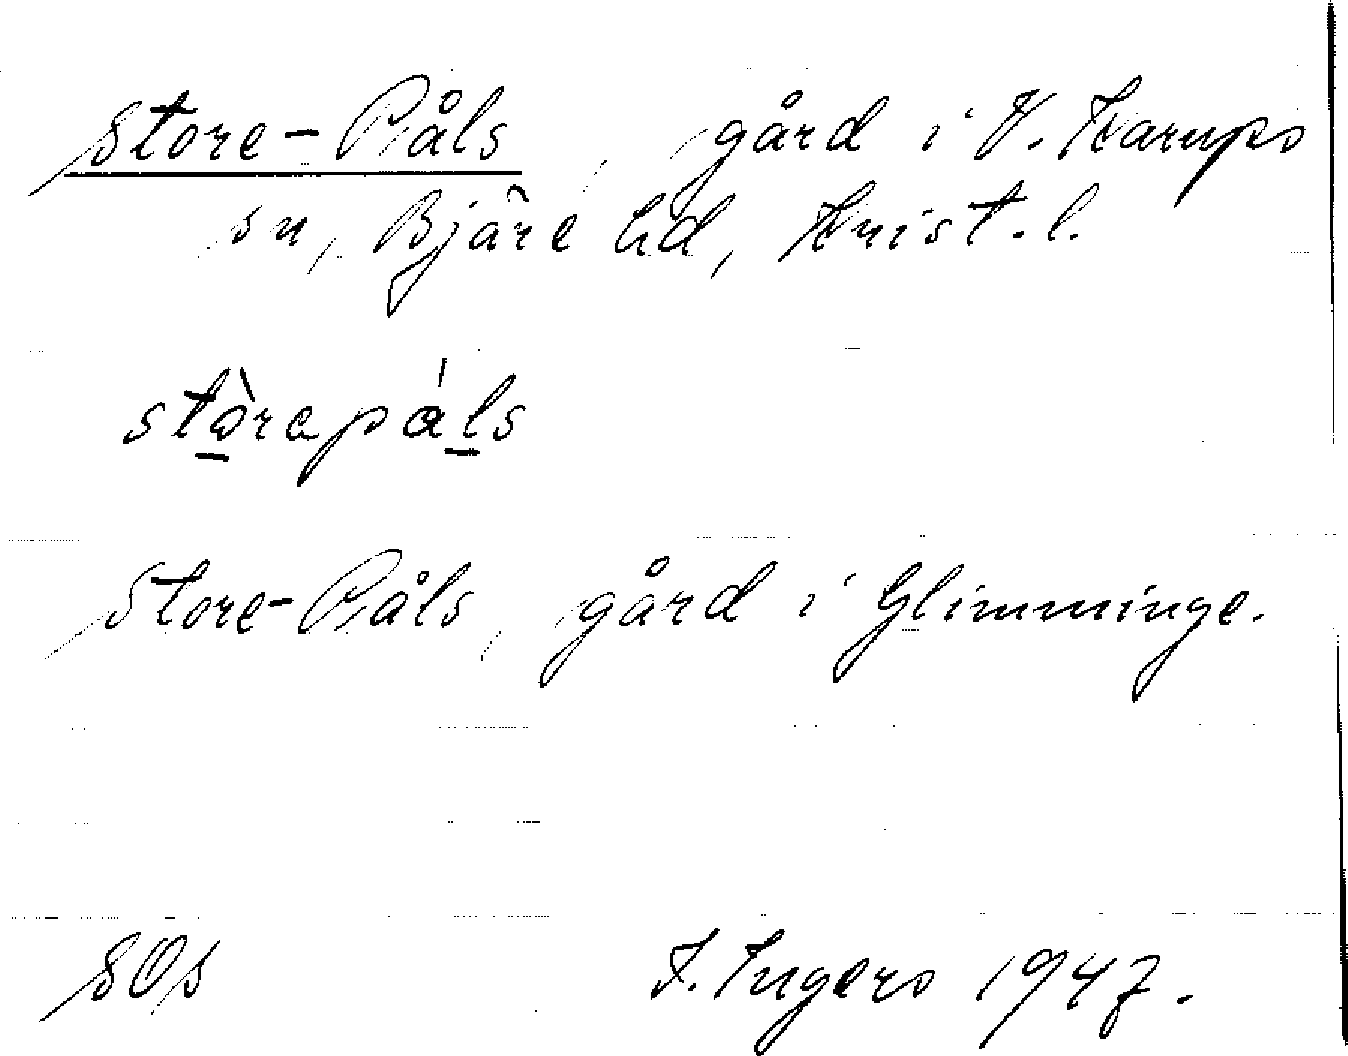 Store-Påls, gård i V. Karups
sn, Bjäre hd, Krist. l.
stòrapáls
Store-Påls, gård i Glimminge.
SOs
I. Ingers 1947.